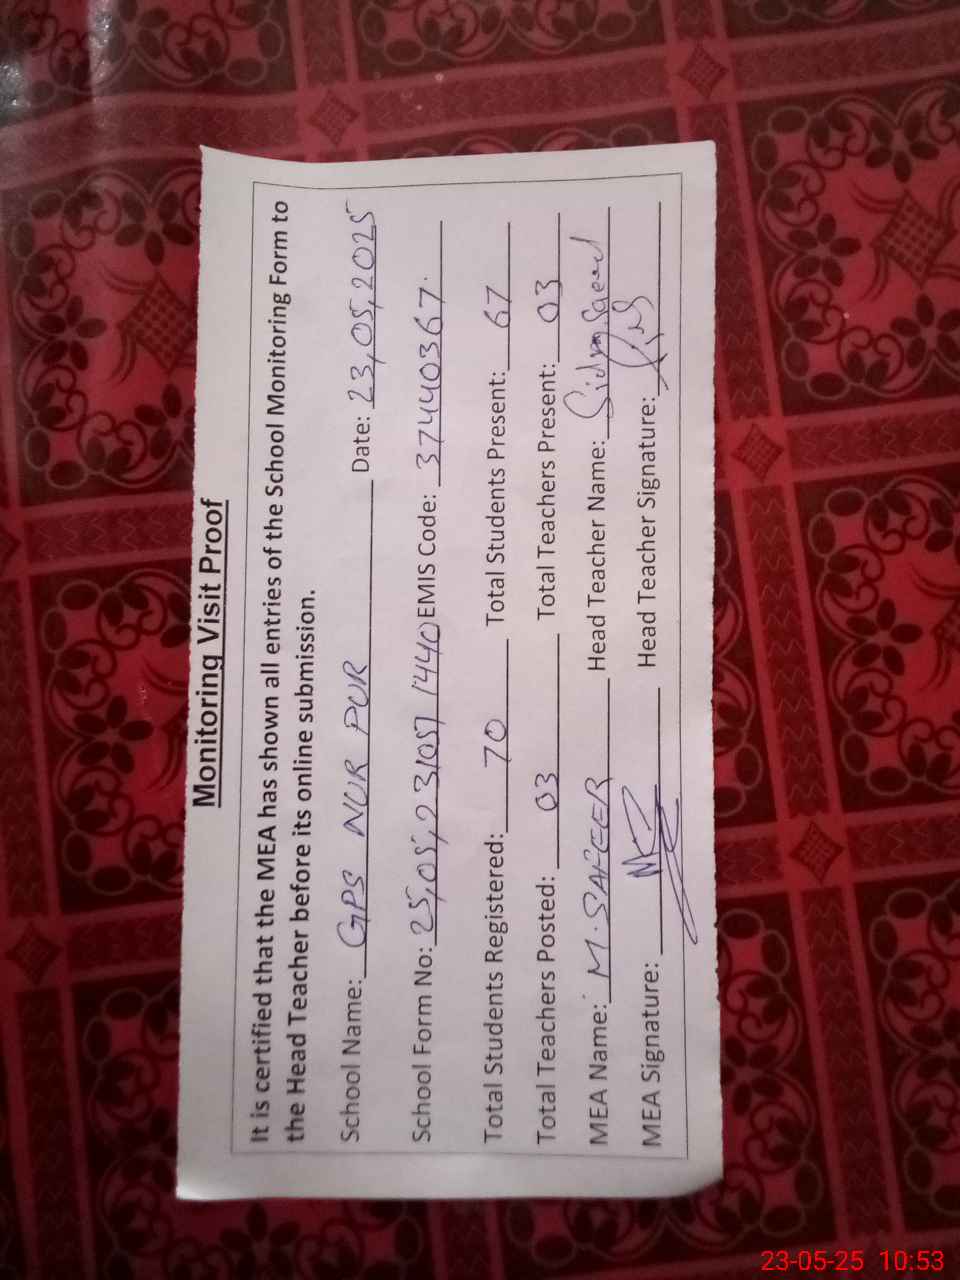 Monitoring Visit Proof
It is certified that the MEA has shown all entries of the School Monitoring Form to
the Head Teacher before its online submission.
School Name: GPS NUR PUR Date: 23,05,2025
School Form No: 25,05,23/057/1440 EMIS Code: 37440367.
Total Students Registered: 70 Total Students Present: 67
Total Teachers Posted: 03 Total Teachers Present: 03
MEA Name: M. SAFEER Head Teacher Name: Saeed
MEA Signature: Head Teacher Signature:
23-05-25 10:53